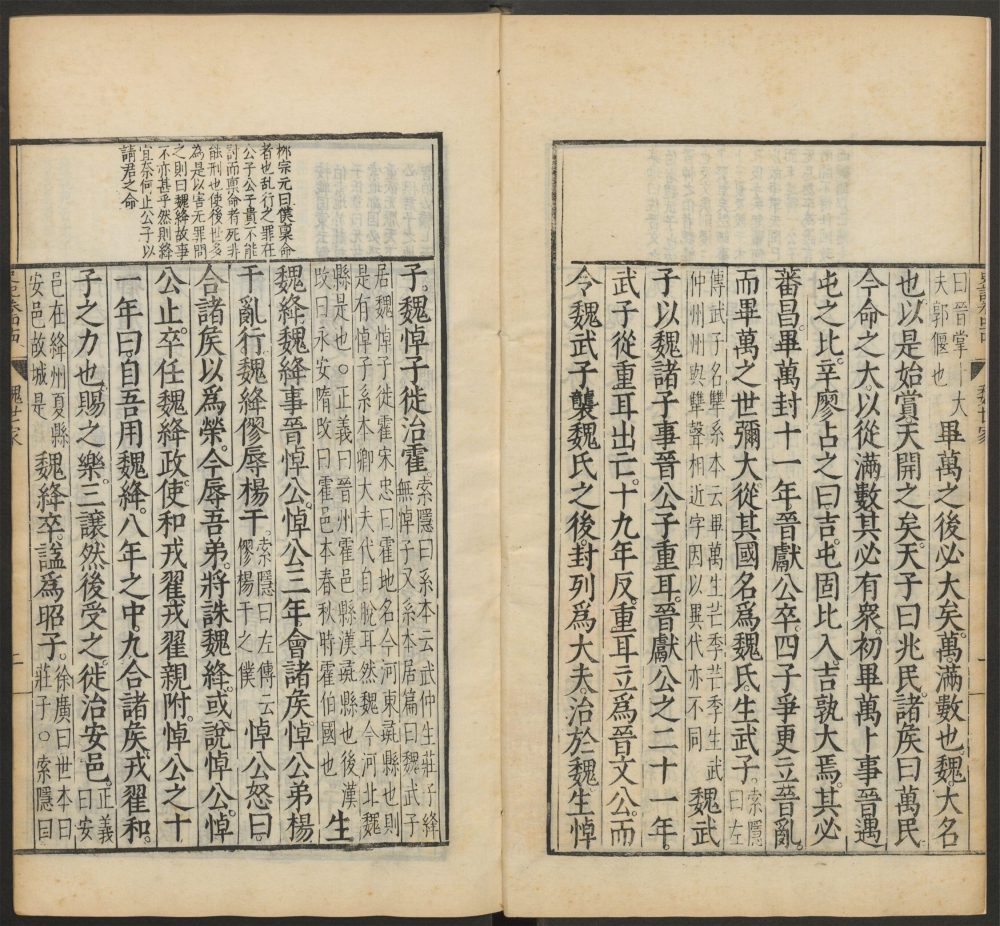 史記卷四十四
魏世家
一
曰晉掌
大夫郭偃也
畢萬之後必大矣萬滿數也魏大名
也以是始賞天開之矣天子曰兆民諸矦曰萬民
今命之大以從滿數其必有衆初畢萬卜事晉遇
屯之比辛廖占之曰吉屯固比入吉孰大焉其必
蕃昌畢萬封十一年晉獻公卒四子爭更立晉亂
而畢萬之世彌大從其國名爲魏氏生武子
索隱曰左
傳武子名犨系本云畢萬生芒季芒季生武
仲州州與犨聲相近字因以異代亦不同
魏武
子以魏諸子事晉公子重耳晉獻公之二十一年
武子從重耳出亡十九年反重耳立爲晉文公而
令魏武子襲魏氏之後封列爲大夫治於魏生悼
柳宗元曰僕稟命
者也乱行之罪在
公子公子貴不能
討而稟命者死非
能刑也使後世多
為是以害无罪問
之則曰魏絳故事
不亦甚乎然則絳
宜奈何止公子以
請君之命
子魏悼子徙治霍
索隱曰系本云武仲生莊子絳
無悼子又系本居篇曰魏武子
居魏悼子徙霍宋忠曰霍地名今河東彘縣也則
是有悼子系本卿大夫代自脫耳然魏今河北魏
縣是也○正義曰晉州霍邑縣漢彘縣也後漢
改曰永安隋改曰霍邑本春秋時霍伯國也
生
魏絳魏絳事晉悼公悼公三年會諸矦悼公弟楊
干亂行魏絳僇辱楊干
索隱曰左傳云
僇楊干之僕
悼公怒曰
合諸矦以爲榮今辱吾弟將誅魏絳或說悼公悼
公止卒任魏絳政使和戎翟戎翟親附悼公之十
一年曰自吾用魏絳八年之中九合諸矦戎翟和
子之力也賜之樂三讓然後受之徙治安邑
正義
曰安
邑在絳州夏縣
安邑故城是
魏絳卒謚爲昭子
徐廣曰世本曰
莊子○索隱曰
魏世家
二